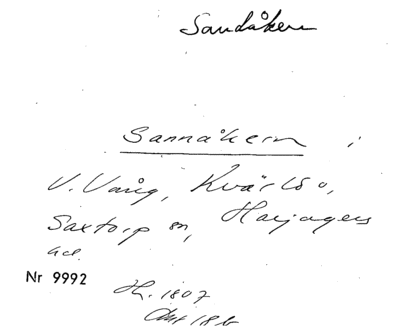 Sandåkern
Sannåkern i
V. Vång, Kvärlöv,
Saxtorp sn, Harjagers
hd.
Nr 9992
H. 1807
Akt 18b